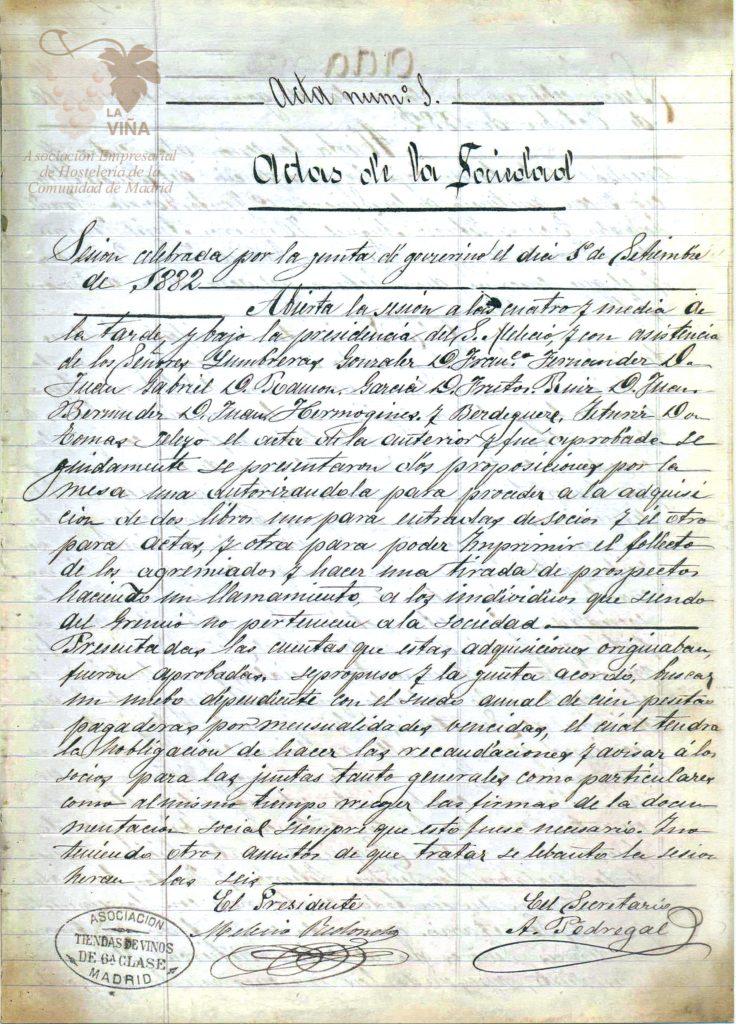 LA
VIÑA
Asociación Empresarial
de Hostelería de la
Comunidad de Madrid
Acta num.º
Actas de la Sociedad
Sesion celebrada por la junta de el dia de Setiembre
de 1882
Abierta la sesion a las cuatro y media de
la tarde, y bajo la presidencia del S. y con asistencia
de los Señores Lumbreras, Gonzalez D. Fran.co Hernandez D.
Juan Gabriel D. Ramon, Garcia D. Frutos. Ruiz D. Juan
Bermudez D. Juan, Hermogines. y
Tomas el acta de la anterior y fue aprobada. Se
guidamente se presentaron dos proposiciones por la
mesa una autorizandola para proceder a la adquisi
cion de dos libros uno para entradas de socios y el otro
para actas, y otra para poder Imprimir el follecto
de los agremiados y hacer una tirada de prospectos
haciendo un llamamiento, a los individuos que siendo
del Gremio no pertenecen a la Sociedad.
Presentadas las cuentas que estas adquisiciones originaban,
fueron aprobadas, se propuso y la junta acordó, buscar
un nuebo dependiente con el sueldo anual de cien pesetas
pagaderas por mensualidades vencidas, el cual tendra
la hobligacion de hacer las recaudaciones y avisar á los
socios para las juntas tanto generales como particulares
como al mismo tiempo recojer las firmas de la docu
mentación social siempre que esto fuese necesario. Y no
teniendo otros asuntos de que tratar se lebanto la sesion
heran las seis
El Presidente El Secretario
Redondo A. Pedregal
ASOCIACION
TIENDAS DE VINOS
DE 6ª CLASE
MADRID